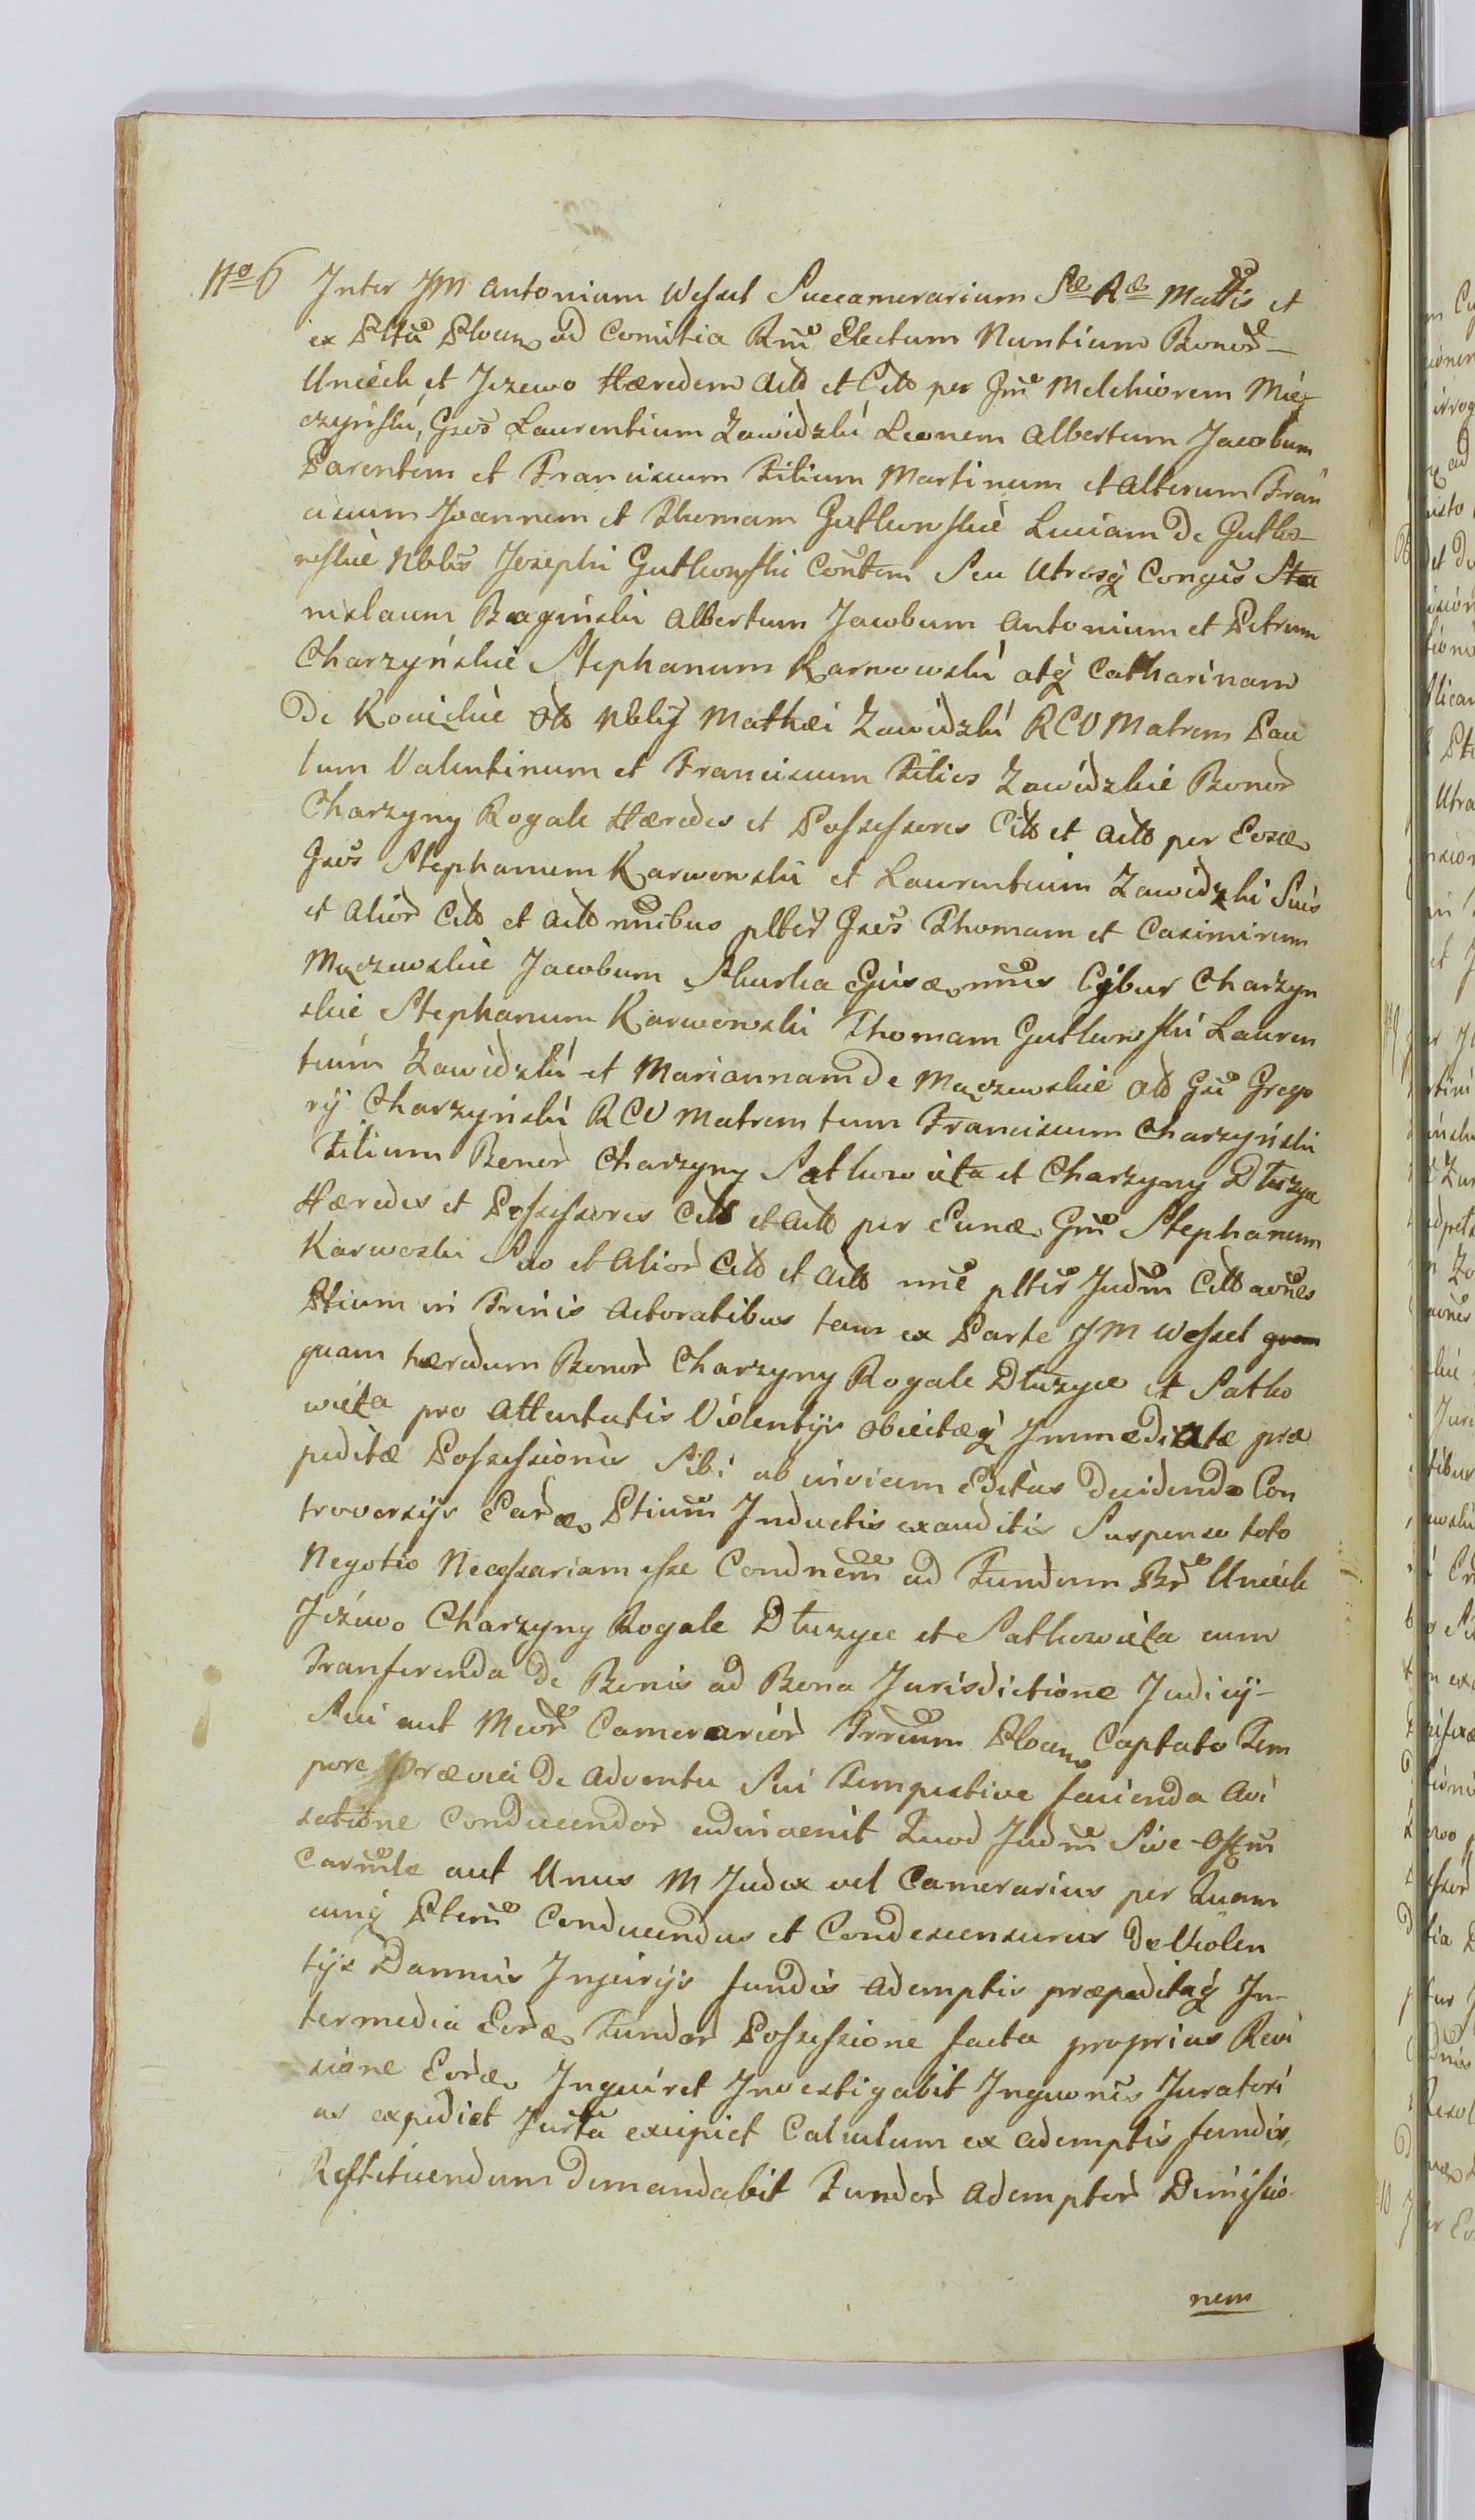 No 6 Inter JM Antonium Wessel Succamerarium Sae Rae Mattis et
ex Pltu Plocen ad Comitia Rni Electum Nuntium Bonor
Unieck et Jezewo Hæredem Acto et Cito per Gm Melchiorem Mię
czyński, Gsos Laurentium Zawidzki Leonem Albertum Jacobum
Parentem et Franciscum Filium Martinum et Alterum Fran
ciscum Joannem et Thomam Gutkowskie Luciam De Gutko
wskie Nblis Josephi Gutkowski Contem Seu Utrosq Conges Sta
nislaum Bagiński Albertum Jacobum Antonium et Petrum
Charzyńskie Stephanum Karwowski atq Catharinam
De Konickie Olo Nblij Mathæi Zawidzki RCV Matrem Pau
lum Valentinum et Franciscum Filios Zawidzkie Bonor
Charzyny Rogale Hæredes et Possessores Cito et Acto per Eosæ
Gsos Stephanum Karwowski et Laurentium Zawidzki Suis
et Alior Cito et Acto nnibus plter Gsos Thomam et Casimirum
Mączewskie Jacobum Skurka Ejusæ nnis Cybur Charzyn
skie Stephanum Karwowski Thomam Gutkowski Lauren
tium Zawidzki et Mariannam De Mączewskie Olo Gsi Grego
rij Charzyński RCV Matrem tum Franciscum Charzyński
Filium Bonor Charzyny Satkowięta et Charzyny Dłuzyce
Hæredes et Possessores Cito et Acto per Eunæ Gm Stephanum
Karwoski Suo et Alior Cito et Acto nne plter Judm Cito aones
Ptium in Trinis Actoratibus tam ex Parte JM Wessel quam
quam hæredum Bonor Charzyny Rogale Dłuzyce et Satko
więta pro Attentatis Violentijs obiectæq Immediatæ præ
peditæ Possessionis Sibi ab invicem Editas Decidendo Con
troversijs Earæ Ptium Inductis exauditis Suspenso toto
Negotio Necessariam esse Condnem ad Fundum Br Uniech
Jeżewo Charzyny Rogale Dłuzyce et Satkowięta cum
Tranferenda De Bonis ad Bona Jurisdictione Judicij
Sui aut Mcor Camerarior Trrum Plocen Captato Tem
pore Prævia De Adventu Sui Tempestive facienda Avi
satione Conducendor adinvenit Quod Judm Sive Offm
Carmle aut Unus M Judex vel Camerarius per Quam
cunq Ptem Conducendus et Condescensurus De Violen
tijs Damnis Injurijs fundis Ademptis præpeditaq In
termedia Eoræ Fundor Possessione facta proprius Revi
sione Eoræ Inquiret Investigabit Inquones Juratori
as expediet Jurta excipiet Calculum ex ademptis fundis,
Restituendum Demandabit Fundor Ademptor Dimissio
nem